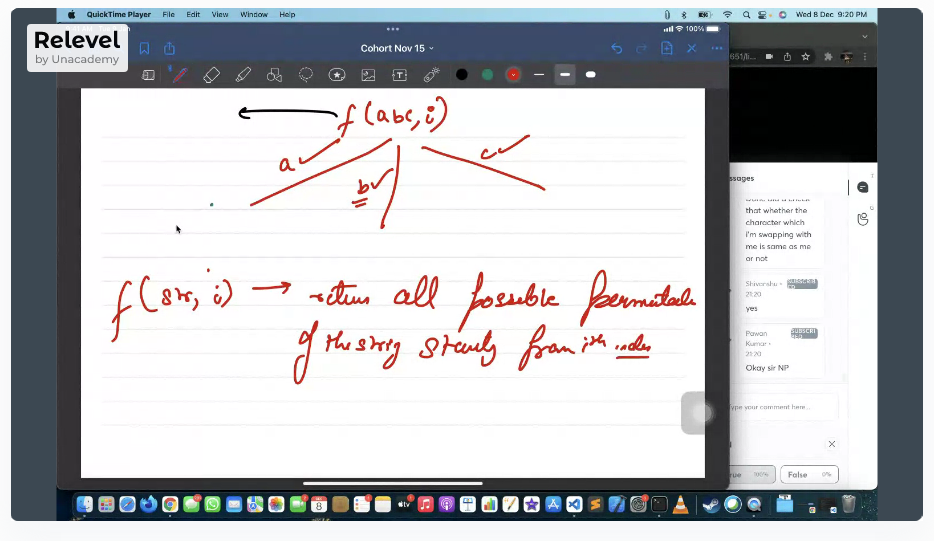 QuickTime Player File Edit View Window Help
Wed 8 Dec 9:20 PM
Relevel
by Unacademy
100%
Cohort Nov 15
651/li...
f(abc, i)
a
b
c
f(str, i) → return all possible
of the string from ith index
ssages
that whether the
character which
i'm swapping with
me is same as me
or not
Shivanshu
21:20
yes
Pawan
Kumar
21:20
Okay sir NP
ype your comment here...
rue 100% False 0%